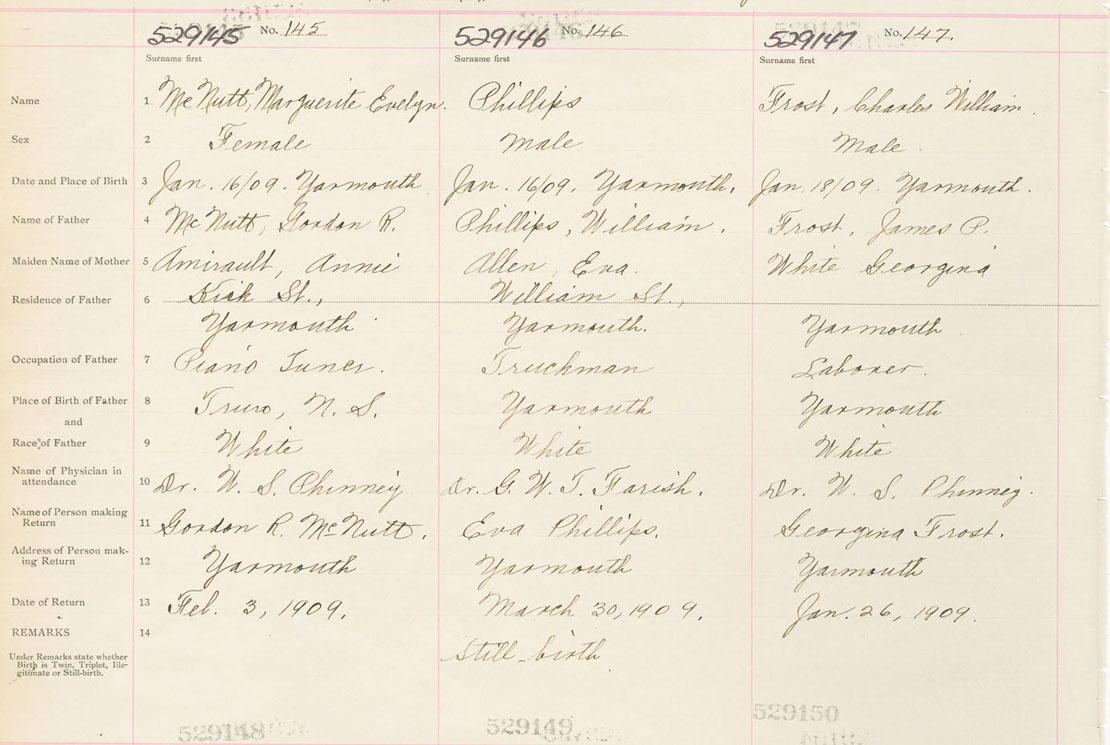 529145 No. 145 529146 No. 146 529147 No. 147.
Surname first Surname first Surname first
Name 1 McNutt, Marguerite Evelyn. Phillips Frost, Charles William.
Sex 2 Female Male Male.
Date and Place of Birth 3 Jan. 16/09. Yarmouth Jan. 16/09. Yarmouth. Jan. 18/09. Yarmouth.
Name of Father 4 McNutt, Gordon R. Phillips, William. Frost, James P.
Maiden Name of Mother 5 Amirault, Annie Allen, Eva. White Georgina
Residence of Father 6 Kirk St., William St.,
Yarmouth Yarmouth. Yarmouth
Occupation of Father 7 Piano Tuner. Truckman Laborer.
Place of Birth of Father 8 Truro, N. S. Yarmouth Yarmouth
and
Race of Father 9 White White White
Name of Physician in
attendance 10 Dr. W. S. Phinney Dr. G. W. T. Farish. Dr. W. S. Phinney.
Name of Person making
Return 11 Gordon R. McNutt. Eva Phillips. Georgina Frost.
Address of Person mak-
ing Return 12 Yarmouth Yarmouth Yarmouth
Date of Return 13 Feb. 3, 1909. March 30, 1909. Jan. 26, 1909.
REMARKS 14
Under Remarks state whether
Birth is Twin, Triplet, Ille-
gitimate or Still-birth.
Still birth
529148 529149 529150